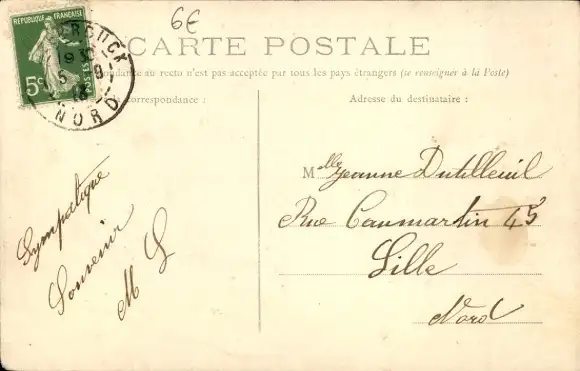 6€
RÉPUBLIQUE FRANÇAISE
5c
POSTES
NORD
CARTE POSTALE
au recto n'est pas acceptée par tous les pays étrangers (se renseigner à la Poste)
correspondance :
Adresse du destinataire :
Sympatique
Souvenir
M L
Mlle Jeanne Dutilleuil
Rue Caumartin 45
Lille
Nord